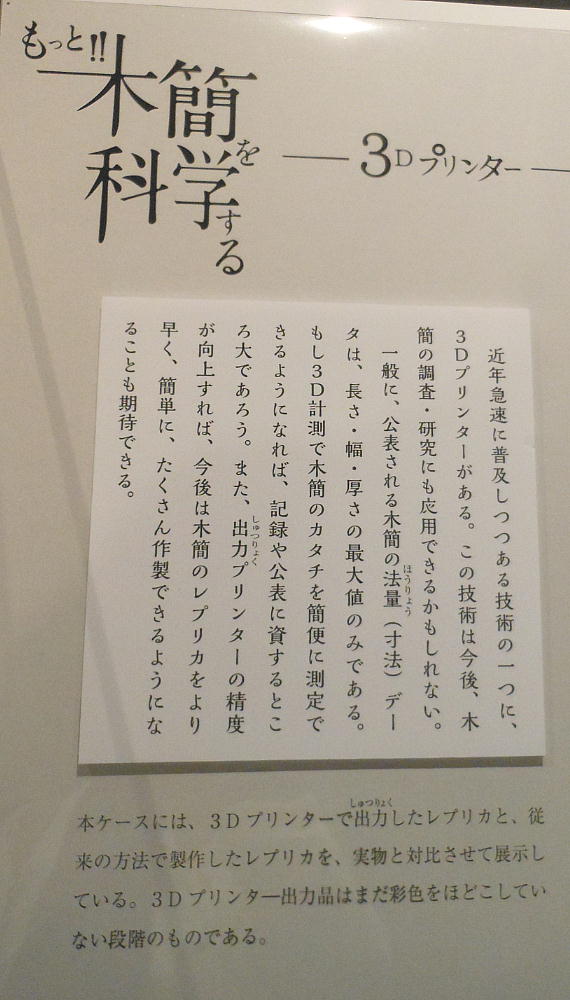 もっと!!
木簡を
科学する
3Dプリンター
近年急速に普及しつつある技術の一つに、
3Dプリンターがある。この技術は今後、木
簡の調査・研究にも応用できるかもしれない。
一般に、公表される木簡の法量（寸法）デー
ほうりょう
タは、長さ・幅・厚さの最大値のみである。
もし3D計測で木簡のカタチを簡便に測定で
きるようになれば、記録や公表に資するとこ
ろ大であろう。また、出力プリンターの精度
しゅつりょく
が向上すれば、今後は木簡のレプリカをより
早く、簡単に、たくさん作製できるようにな
ることも期待できる。
しゅつりょく
本ケースには、3Dプリンターで出力したレプリカと、従
来の方法で製作したレプリカを、実物と対比させて展示し
ている。3Dプリンター出力品はまだ彩色をほどこしてい
ない段階のものである。